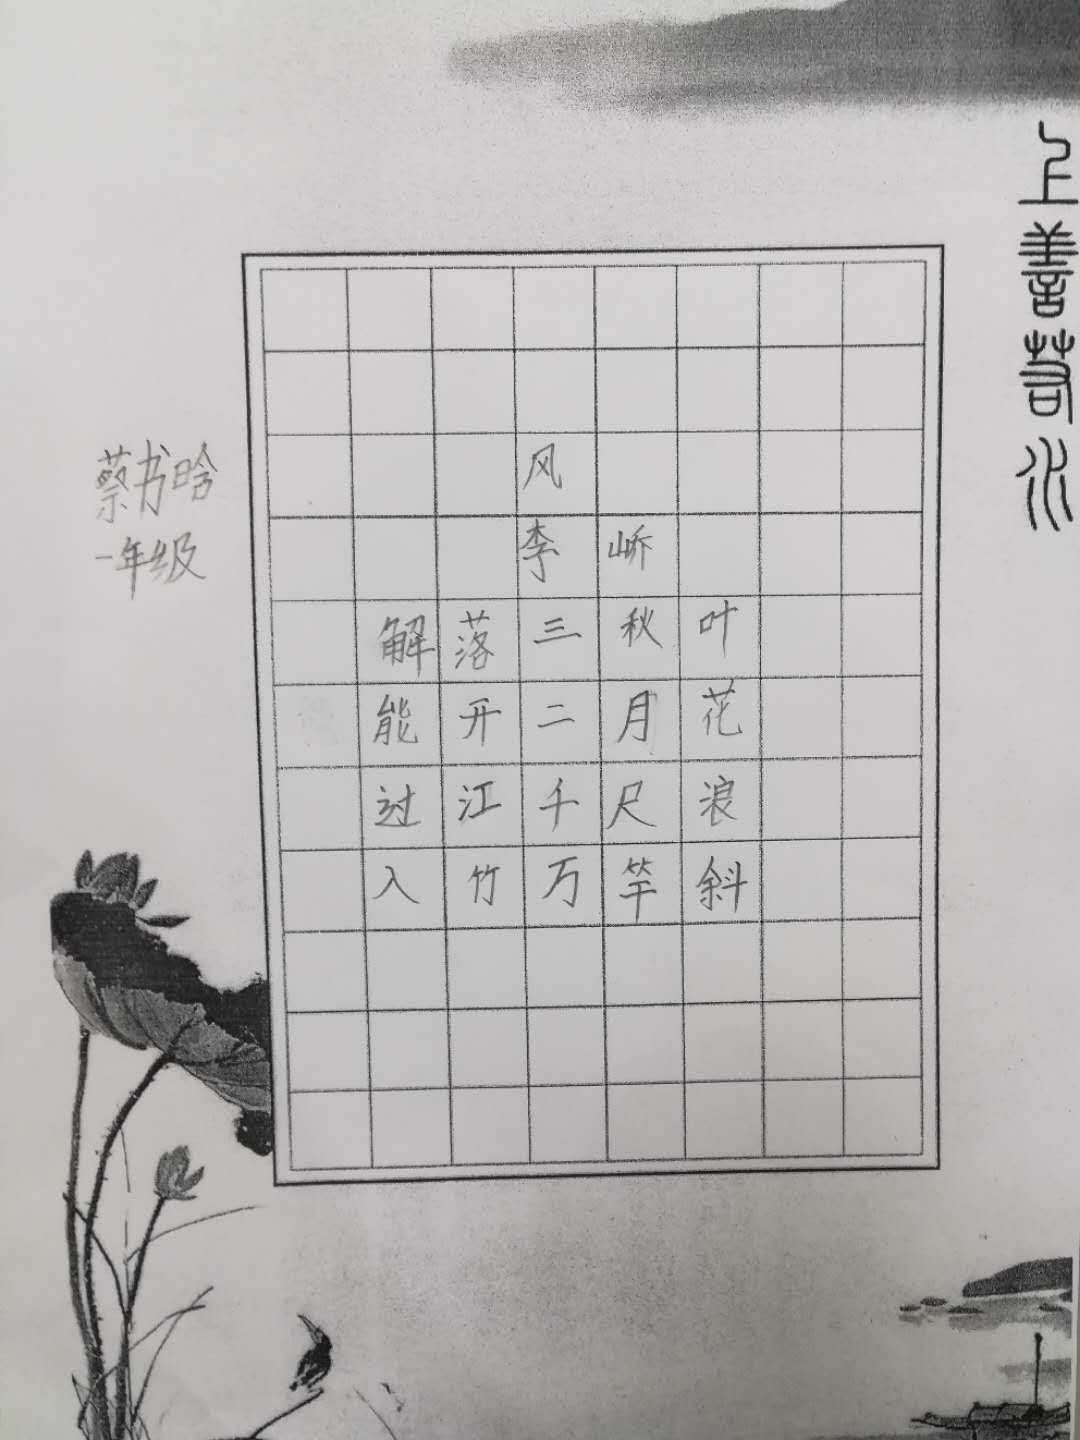 上善若水
蔡书晗
一年级
风
李峤
解落三秋叶
能开二月花
过江千尺浪
入竹万竿斜